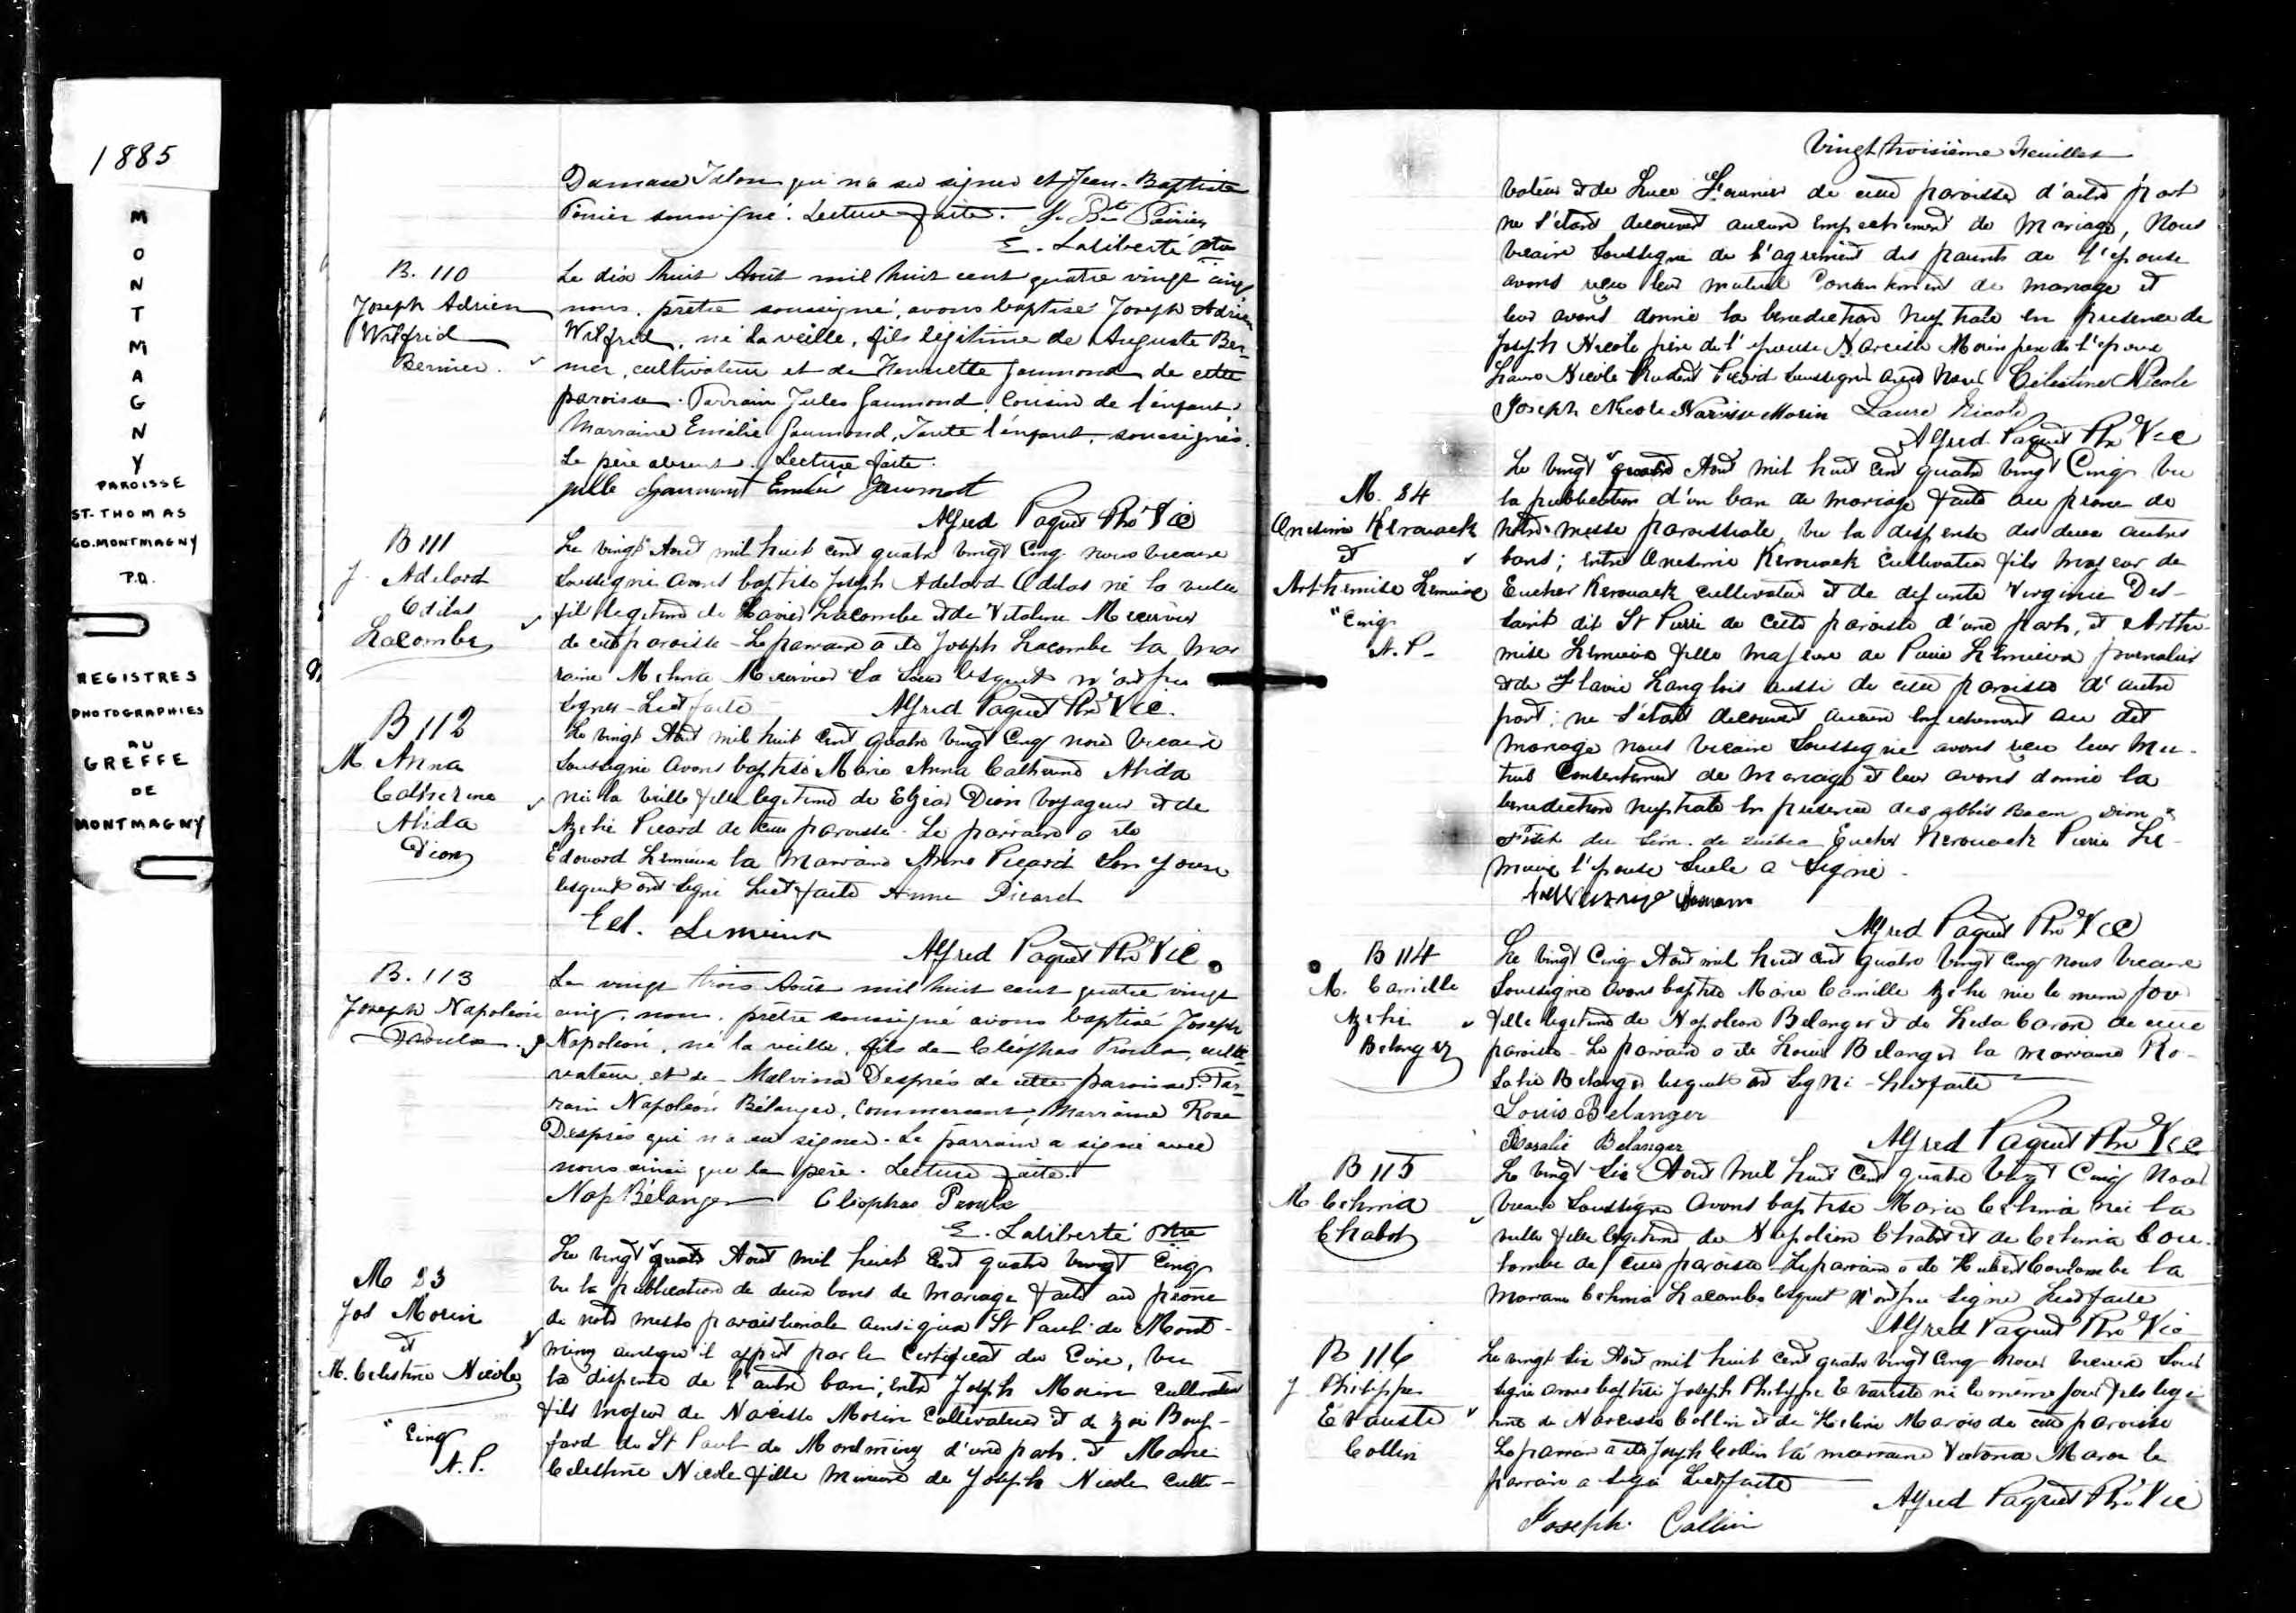 1885
MONTMAGNY
PAROISSE
ST-THOMAS
CO. MONTMAGNY
P.Q.
REGISTRES
PHOTOGRAPHIES
AU
GREFFE
DE
MONTMAGNY
Damase Talon qui n'a su signer et Jean-Baptiste
Poirier soussigné. Lecture faite. J. Bte Poirier
E. Laliberté Ptre
B. 110
Joseph Adrien
Wilfrid
Bernier
Le dix huit Août mil huit cent quatre vingt cinq
nous, prêtre soussigné, avons baptisé Joseph Adrien
Wilfrid, né la veille, fils légitime de Auguste Ber-
nier, cultivateur et de Henriette Gaumond de cette
paroisse. Parrain Jules Gaumond, Cousin de l'enfant,
Marraine Emélie Gaumond, Tante l'enfant, soussignés.
Le père absent. Lecture faite.
Julle Gaumont Emélie Gaumont
Alfred Paquet Ptre Vic
B 111
J. Adelard
Odilas
Lacombe
Le vingt Aout mil huit cent quatre vingt Cinq nous vicaire
soussigné avons baptisé Joseph Adelard Odilas né la veille
fils legitime de Lacombe et de Vitaline Mercier
de cette paroisse - Le parrain a été Joseph Lacombe la mar
raine Melina Mercier lesquels n'ont pu
signer - Lect faite Alfred Paquet Ptre Vic.
B 112
M Anna
Catherine
Alida
Dion
Le vingt Aout mil huit Cent quatre vingt Cinq nous Vicaire
Soussigné avons baptisé Marie Anna Catherine Alida
née la veille fille legitime de Elzéar Dion Voyageur et de
Azelie Picard de cette paroisse - Le parrain a été
Edouard Lemieux la Marraine Anna Picard Son epouse
lesquels ont signé Lect faite Anna Picard
Ed. Lemieux
Alfred Paquet Ptre Vic
B. 113
Joseph Napoléon
Proulx
Le vingt trois Août mil huit cent quatre vingt
cinq, nous, prêtre soussigné avons baptisé Joseph
Napoléon, né la veille, fils de Cléophas Proulx, culti
vateur et de Malvina Després de cette paroisse. Par-
rain Napoléon Bélanger, Commercant, Marraine Rose
Després qui n'a su signer. Le parrain a signé avec
nous ainsi que le père. Lecture faite.
Nap Bélanger Cléophas Proulx
E. Laliberté Ptre
M 83
Jos Morin
et
M. Celestine Nicole
"Cinq
A. P.
Le vingt quatre Aout mil huit Cent quatre vingt Cinq
vu la publication de deux bans de Mariage faite au prône
de notre messe paroissiale ainsi qu'a St Paul de Mont-
miny ainsi qu'il appert par le Certificat du Curé, vu
la dispense de l'autre ban; entre Joseph Morin Cultivateur
fils majeur de Narcisse Morin Cultivateur et de Zoé Bouf-
fard de St Paul de Montminy d'une part, et Marie
Celestine Nicole fille mineure de Joseph Nicole Culti-
Vingt troisième Feuillet
vateur et de Luce Fournier de cette paroisse d'autre part
ne s'étant decouvert aucun empechement de Mariage, Nous
vicaire Soussigné de l'agrement des parents de l'epouse
avons reçu leur mutuel Consentement de mariage et
leur avons donné la benediction Nuptiale en presence de
Joseph Nicole père de l'epouse Narcisse Morin père de l'epoux
Laure Nicole Picard soussignés avec Nous Célestine Nicole
Joseph Nicole Narcisse Morin Laure Nicole
Alfred Paquet Ptre Vic
M. 84
Onesime Kerouack
et
Arthemise Lemieux
"Cinq
A. P.
Le vingt quatre Aout mil huit Cent quatre vingt Cinq vu
la publication d'un ban de mariage faite au prone de
notre messe paroissiale, vu la dispense des deux autres
bans; entre Onesime Kerouack Cultivateur fils majeur de
Eucher Kerouack cultivateur et de defunte Virginie Des-
saint dit St Pierre de Cette paroisse d'une part, et Arthe
mise Lemieux fille majeure de Pierre Lemieux journalier
et de Flavie Langlois aussi de cette paroisse d'autre
part; ne s'étant decouvert aucun empechement au dit
mariage nous vicaire Soussigné avons reçu leur Mu-
tuel Consentement de Mariage et leur avons donné la
benediction nuptiale en presence des abbés Dion &
du Sém. de Québec Eucher Kerouack Pierre Le-
mieux l'epouse Seule a Signé -
Alfred Paquet Ptre Vic
B 114
M. Camille
Azelie
Belanger
Le vingt Cinq Aout mil huit Cent quatre vingt Cinq nous vicaire
Soussigné avons baptisé Marie Camille Azelie née le meme jour
fille legitime de Napoleon Belanger et de Leda Caron de cette
paroisse - Le parrain a été Louis Belanger la marraine Ro-
salie Belanger lesquels ont Signé - Lect faite
Louis Belanger
Rosalie Belanger Alfred Paquet Ptre Vic
B 115
M Celina
Chabot
Le vingt Six Aout Mil huit Cent quatre vingt Cinq Nous
vicaire Soussigné avons baptisé Marie Celina née la
veille fille legitime de Napoleon Chabot et de Celina Cou-
lombe de cette paroisse - Le parrain a été Hubert Coulombe la
Marraine Celina Lacombe lesquels n'ont pu Signé Lect faite
Alfred Paquet Ptre Vic
B 116
J Philippe
Evariste
Collin
Le vingt Six Aout mil huit Cent quatre vingt Cinq nous vicaire Sous
signé avons baptisé Joseph Philippe Evariste né le même jour fils legi
time de Narcisse Collin et de Helene Marois de cette paroisse
Le parrain a été Joseph Collin la marraine Victoria Marois le
parrain a signé Lect faite
Alfred Paquet Ptre Vic
Joseph Collin